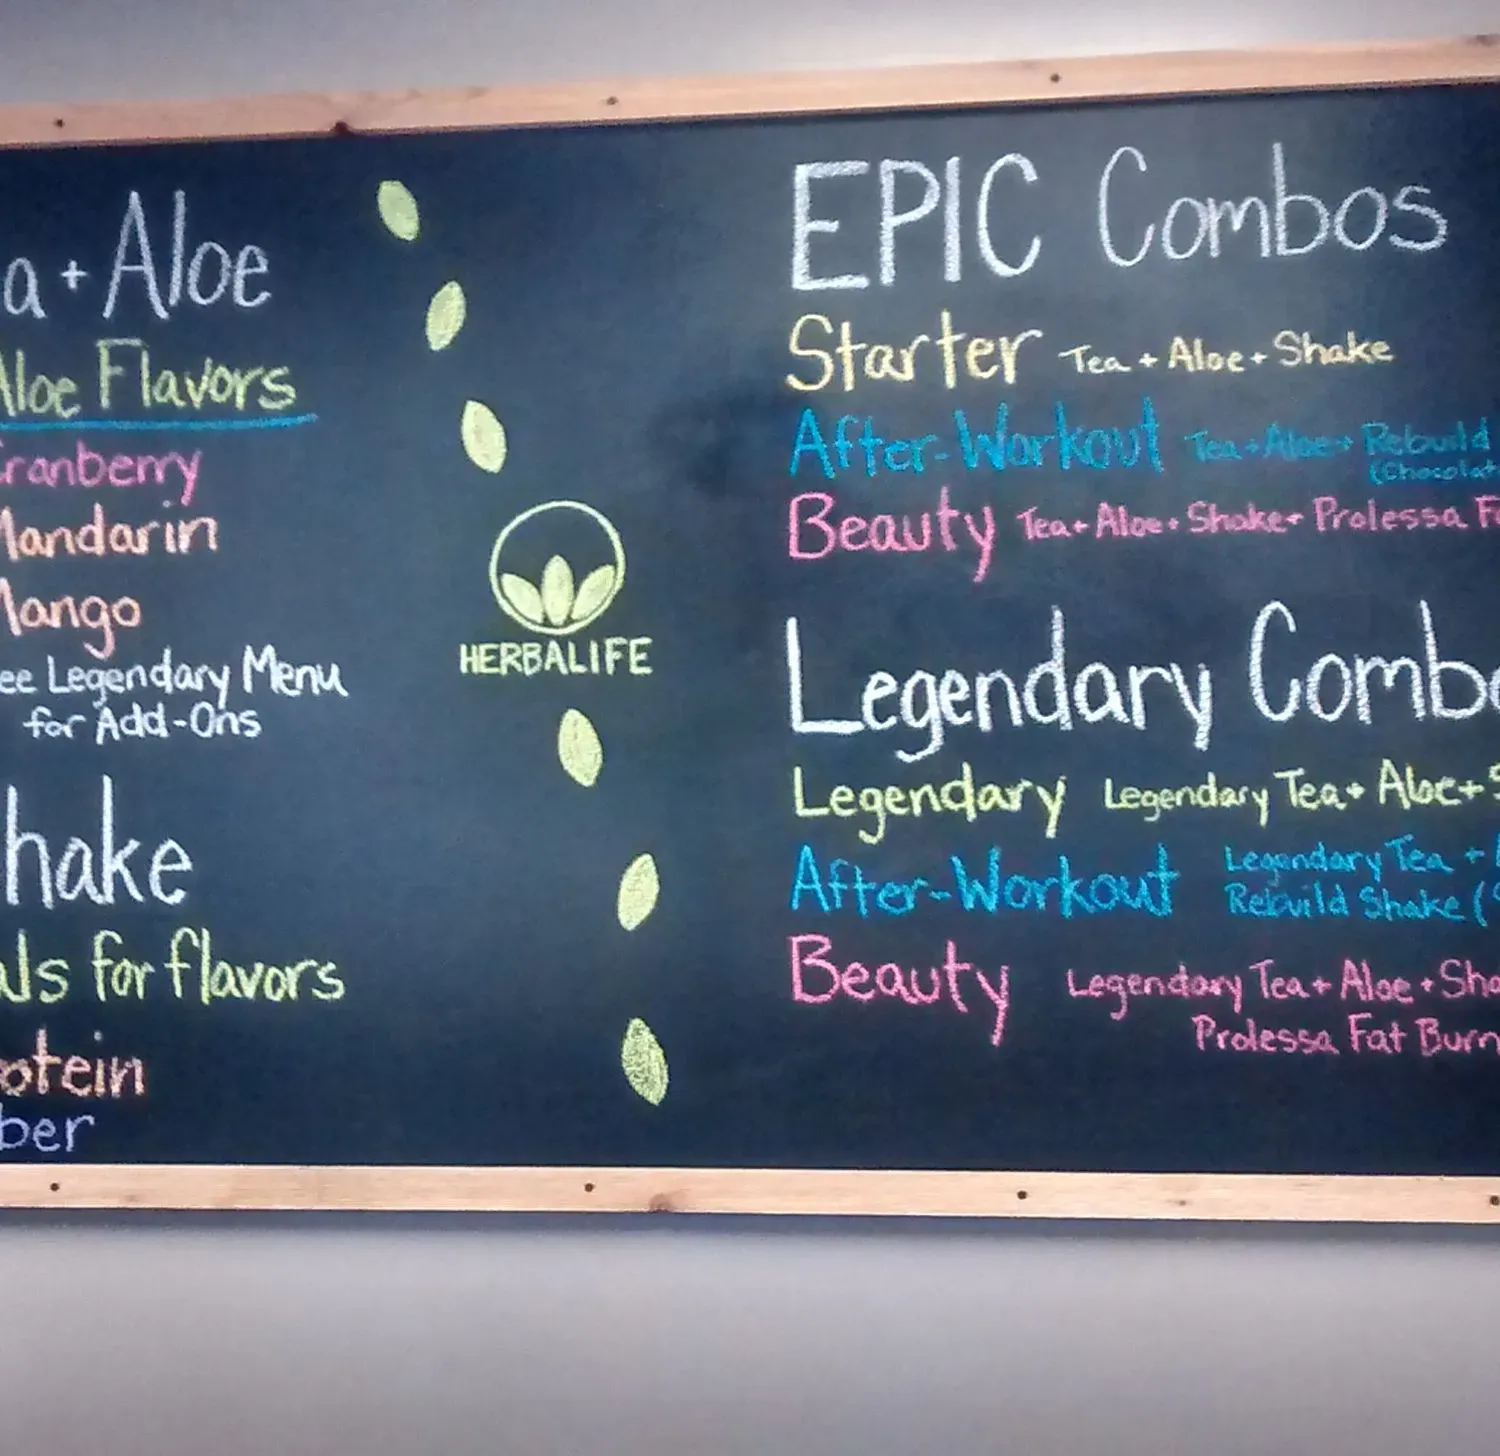 a + Aloe
Aloe Flavors
Cranberry
Mandarin
Mango
ee Legendary Menu
for Add-Ons
hake
als for flavors
otein
ber
HERBALIFE
EPIC Combos
Starter Tea + Aloe + Shake
After-Workout Tea + Aloe + Rebuild
(Chocolat
Beauty Tea + Aloe + Shake + Prolessa F
Legendary Combo
Legendary Legendary Tea + Aloe + S
After-Workout Legendary Tea +
Rebuild Shake (
Beauty Legendary Tea + Aloe + Sha
Prolessa Fat Burn